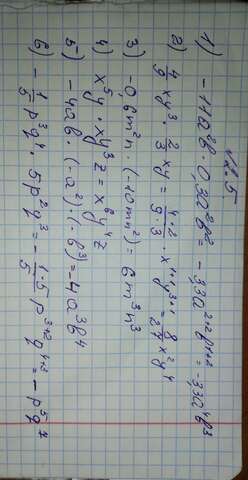 №1.5
1) - 11a²b · 0,3a²b² = - 3,3a²⁺²b¹⁺² = - 3,3a⁴b³
2) 4/9 xy³ · 2/3 xy = 4·2/9·3 · x¹⁺¹y³⁺¹ = 8/27 x²y⁴
3) - 0,6m²n · (-10mn²) = 6m³n³
4) x⁵y · xy³z = x⁶y⁴z
5) - 4ab · (-a²) · (-b³) = - 4a³b⁴
6) - 1/5 p³q⁴ · 5p²q³ = - 1·5/5 p³⁺²q⁴⁺³ = - p⁵q⁷